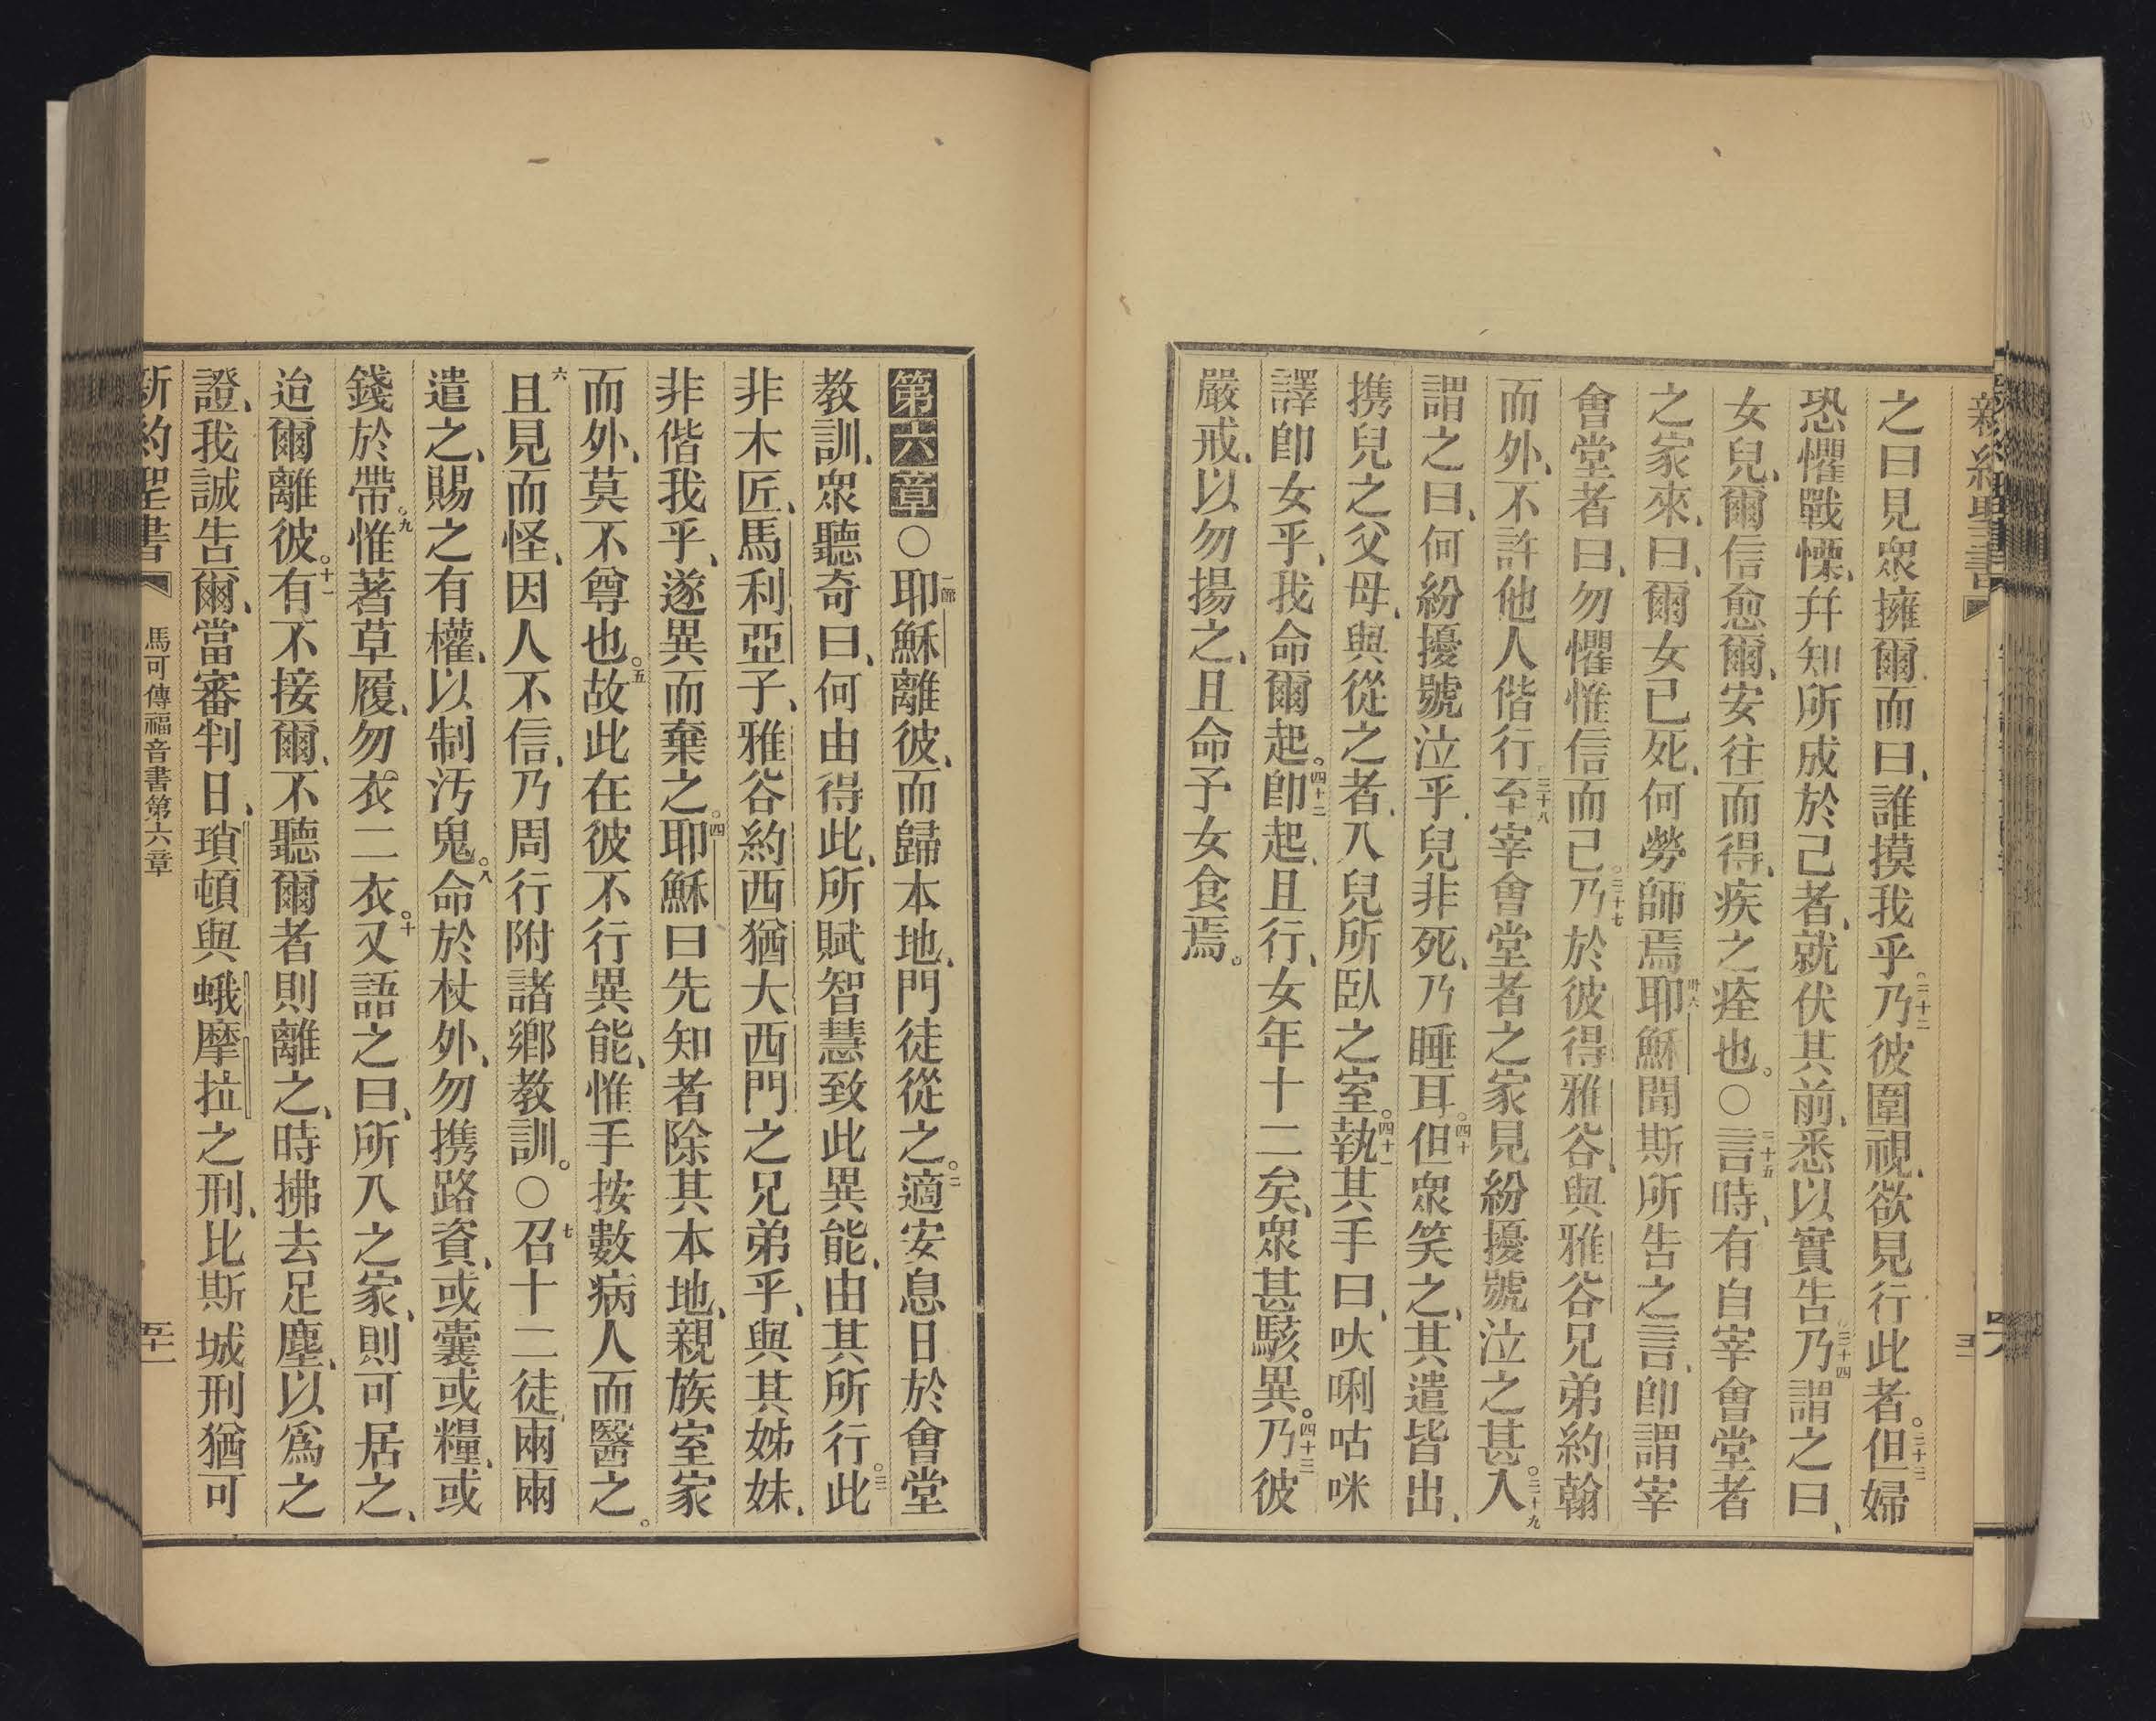 新約聖書
之曰見衆擁爾而曰、誰摸我乎。三十二乃彼圍視、欲見行此者。三十三但婦
恐懼戰慄、幷知所成於己者、就伏其前、悉以實告三十四乃謂之曰、
女兒、爾信愈爾、安往而得、疾之痊也。○三十五言時、有自宰會堂者
之家來、曰、爾女已死、何勞師焉卅六耶穌聞斯所告之言、卽謂宰
會堂者曰、勿懼惟信而已。三十七乃於彼得雅谷、與雅谷兄弟約翰
而外、不許他人偕行三十八至宰會堂者之家見紛擾號泣之甚。三十九入
謂之曰、何紛擾號泣乎、兒非死、乃睡耳。四十但衆笑之、其遣皆出、
携兒之父母、與從之者、入兒所臥之室。四十一執其手曰、呔唎咕咪
譯卽女乎、我命爾起。四十二卽起、且行、女年十二矣、衆甚駭異。四十三乃彼
嚴戒、以勿揚之、且命予女食焉。
第六章○一節耶穌離彼、而歸本地、門徒從之。二適安息日於會堂
教訓、衆聽奇曰、何由得此、所賦智慧致此異能、由其所行。三此
非木匠、馬利亞子、雅谷約西猶大西門之兄弟乎、與其姊妹、
非偕我乎、遂異而棄之。四耶穌曰先知者除其本地、親族室家
而外、莫不尊也。五故此在彼不行異能、惟手按數病人而醫之。
六且見而怪、因人不信、乃周行附諸鄉教訓。○七召十二徒、兩兩
遣之、賜之有權、以制汚鬼。八命於杖外、勿携路資、或囊或糧、或
錢於帶。九惟著草履、勿衣二衣。十又語之曰、所入之家、則可居之、
迨爾離彼。十一有不接爾、不聽爾者則離之、時拂去足塵、以爲之
證、我誠告爾、當審判日、瑣頓與蛾摩拉之刑、比斯城刑猶可
新約聖書 馬可傳福音書第六章 五十一